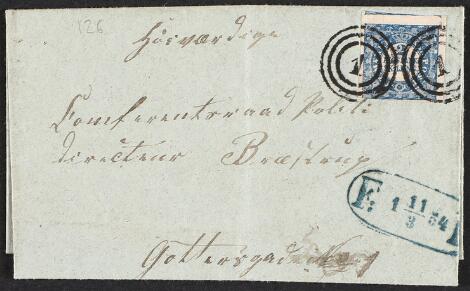 126
Høivædige
1 1
Conferentsraad Politi
directeur Bræstrup
F: 1 11/3 54
Gothersgade